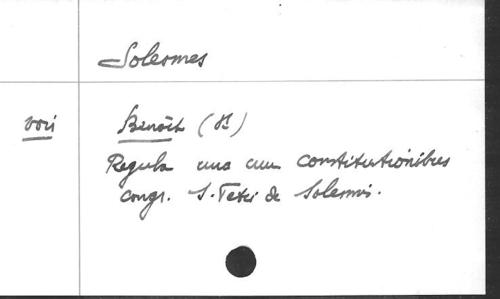 Solesmes
voir Benoît (St)
Regula una cum constitutionibus
congr. S. Petri de Solesmis.